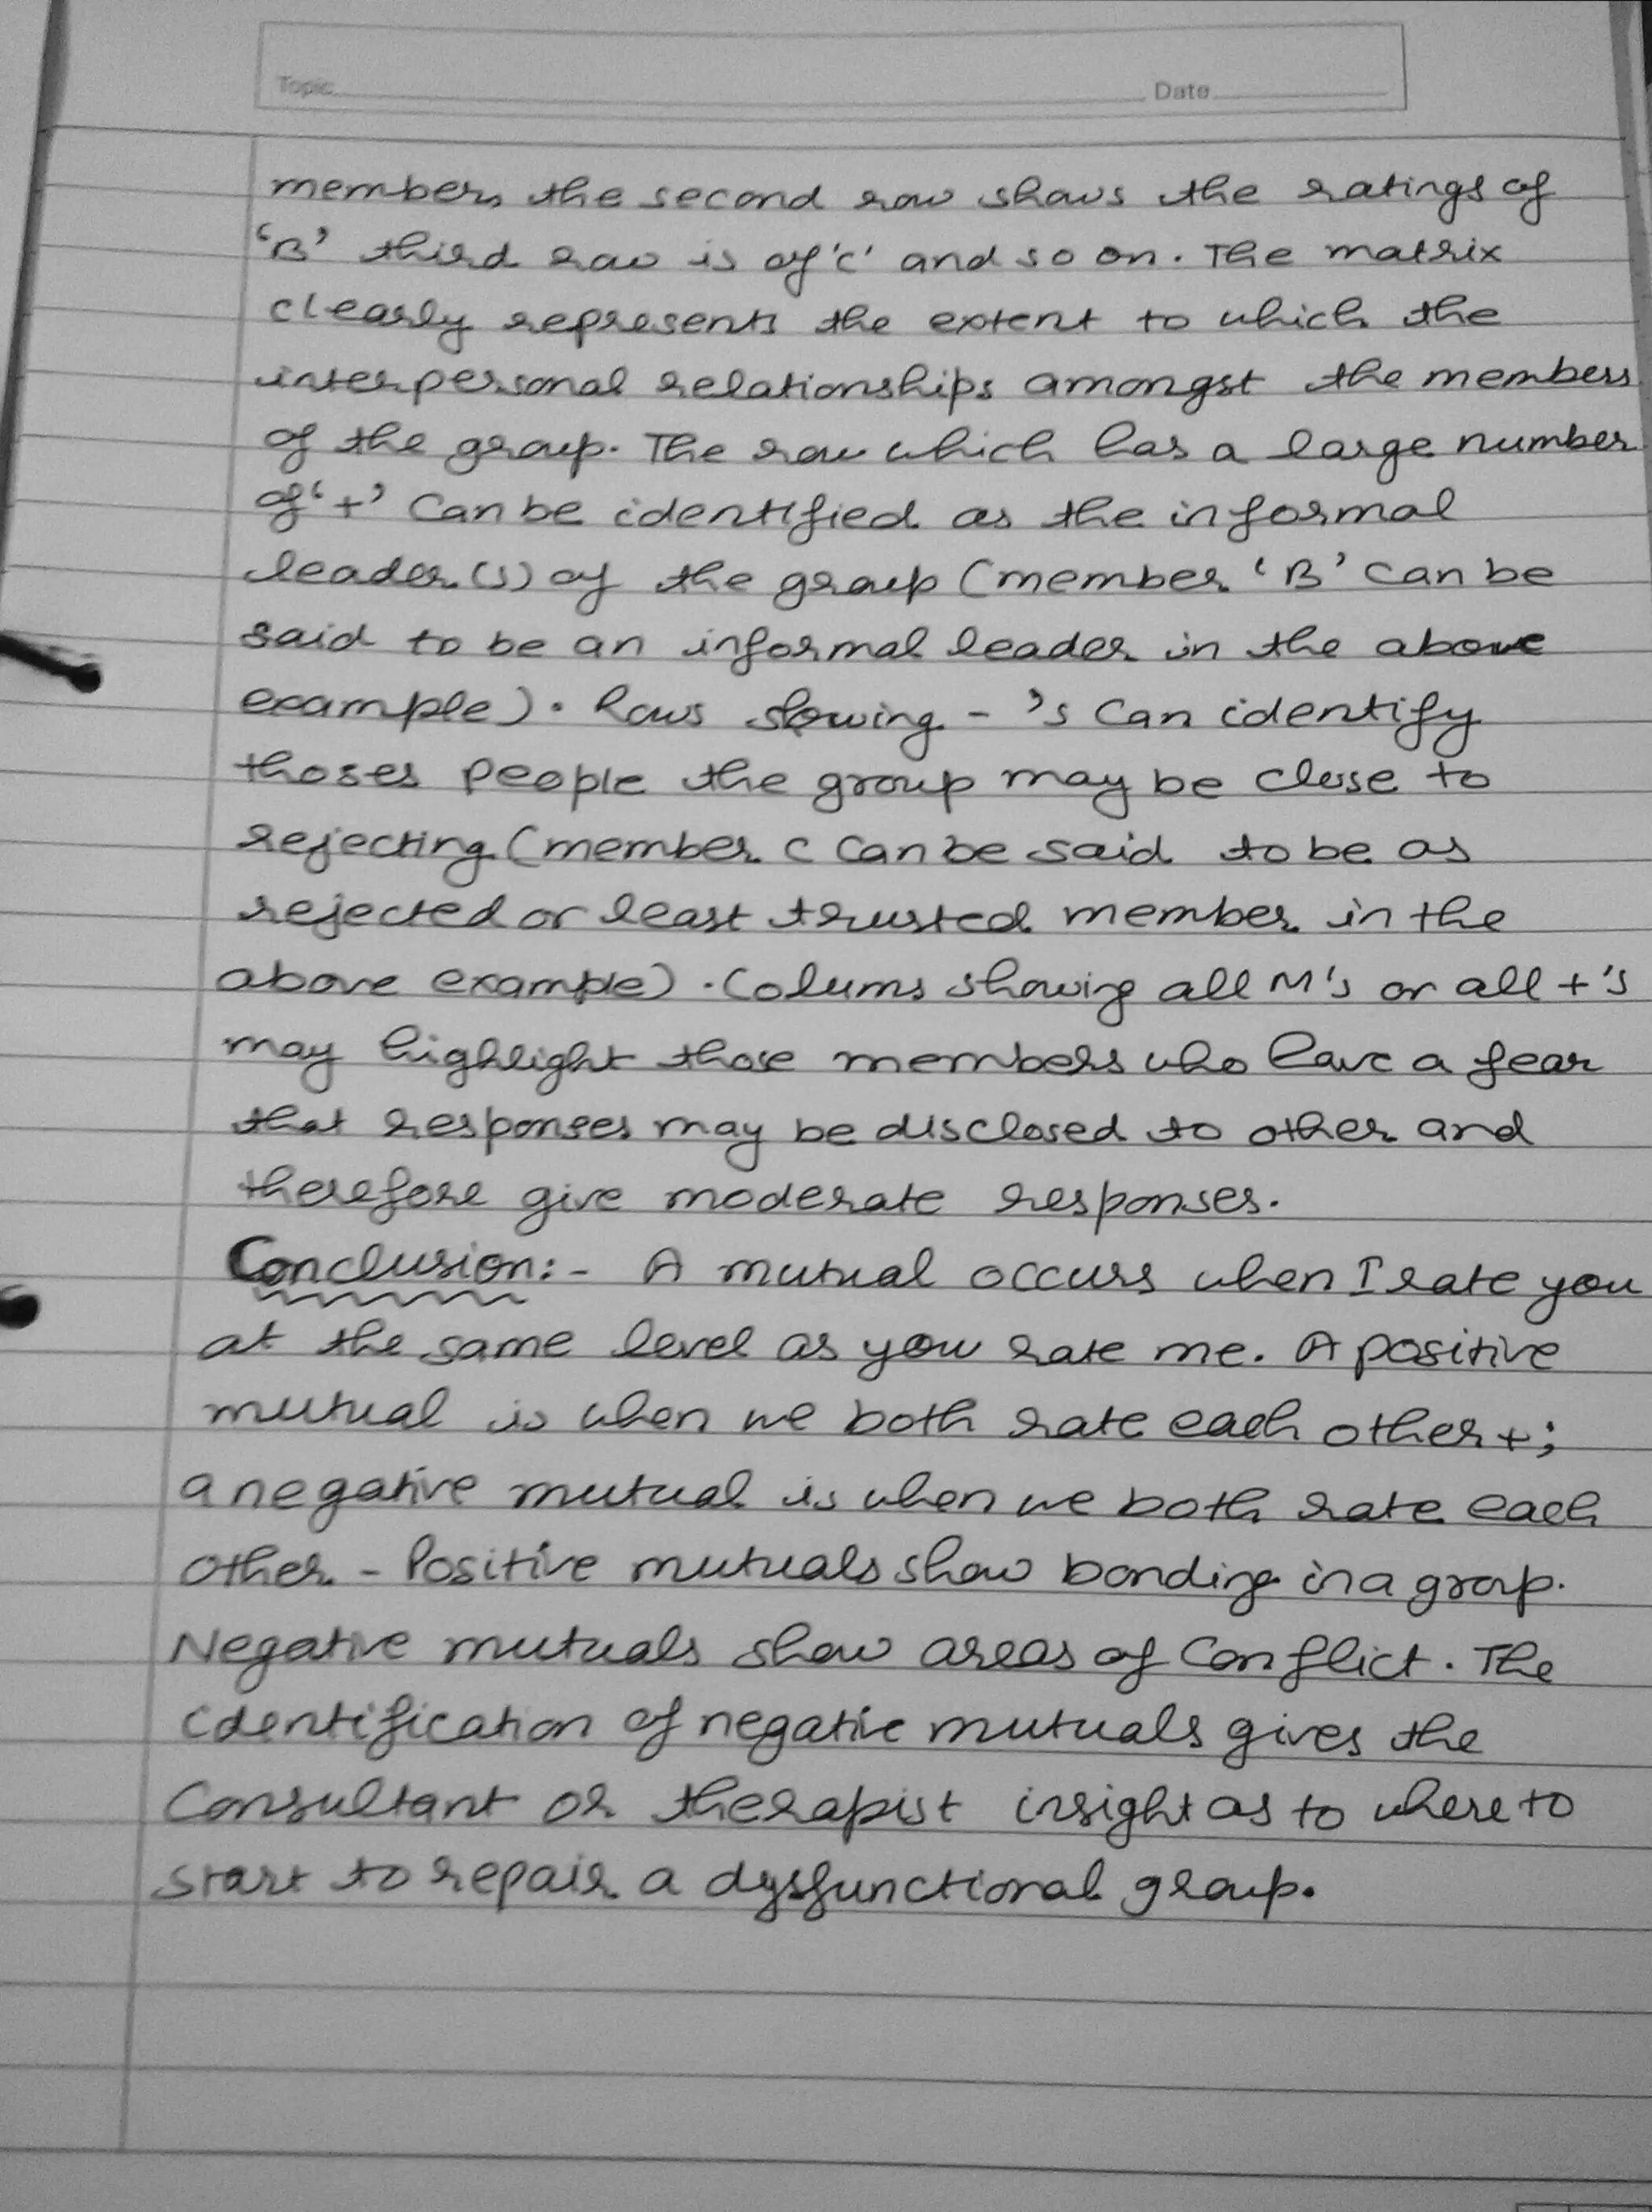 Topic Date
members the second row shows the ratings of
'B' third row is of 'C' and so on. The matrix
clearly represents the extent to which the
interpersonal relationships amongst the members
of the group. The row which has a large number
of '+' Can be identified as the informal
leader(s) of the group (member 'B' can be
said to be an informal leader in the above
example). Rows slowing - 's Can identify
thoses people the group may be close to
rejecting (member C Can be said to be as
rejected or least trusted member in the
above example). Colums showing all M's or all +'s
may highlight those members who have a fear
that responses may be disclosed to other and
therefore give moderate responses.
Conclusion:- A mutual occurs when I rate you
at the same level as you rate me. A positive
mutual is when we both rate each other +;
a negative mutual is when we both rate each
other - Positive mutuals show bonding in a group.
Negative mutuals show areas of Conflict. The
identification of negative mutuals gives the
Consultant or therapist insight as to where to
start to repair a dysfunctional group.